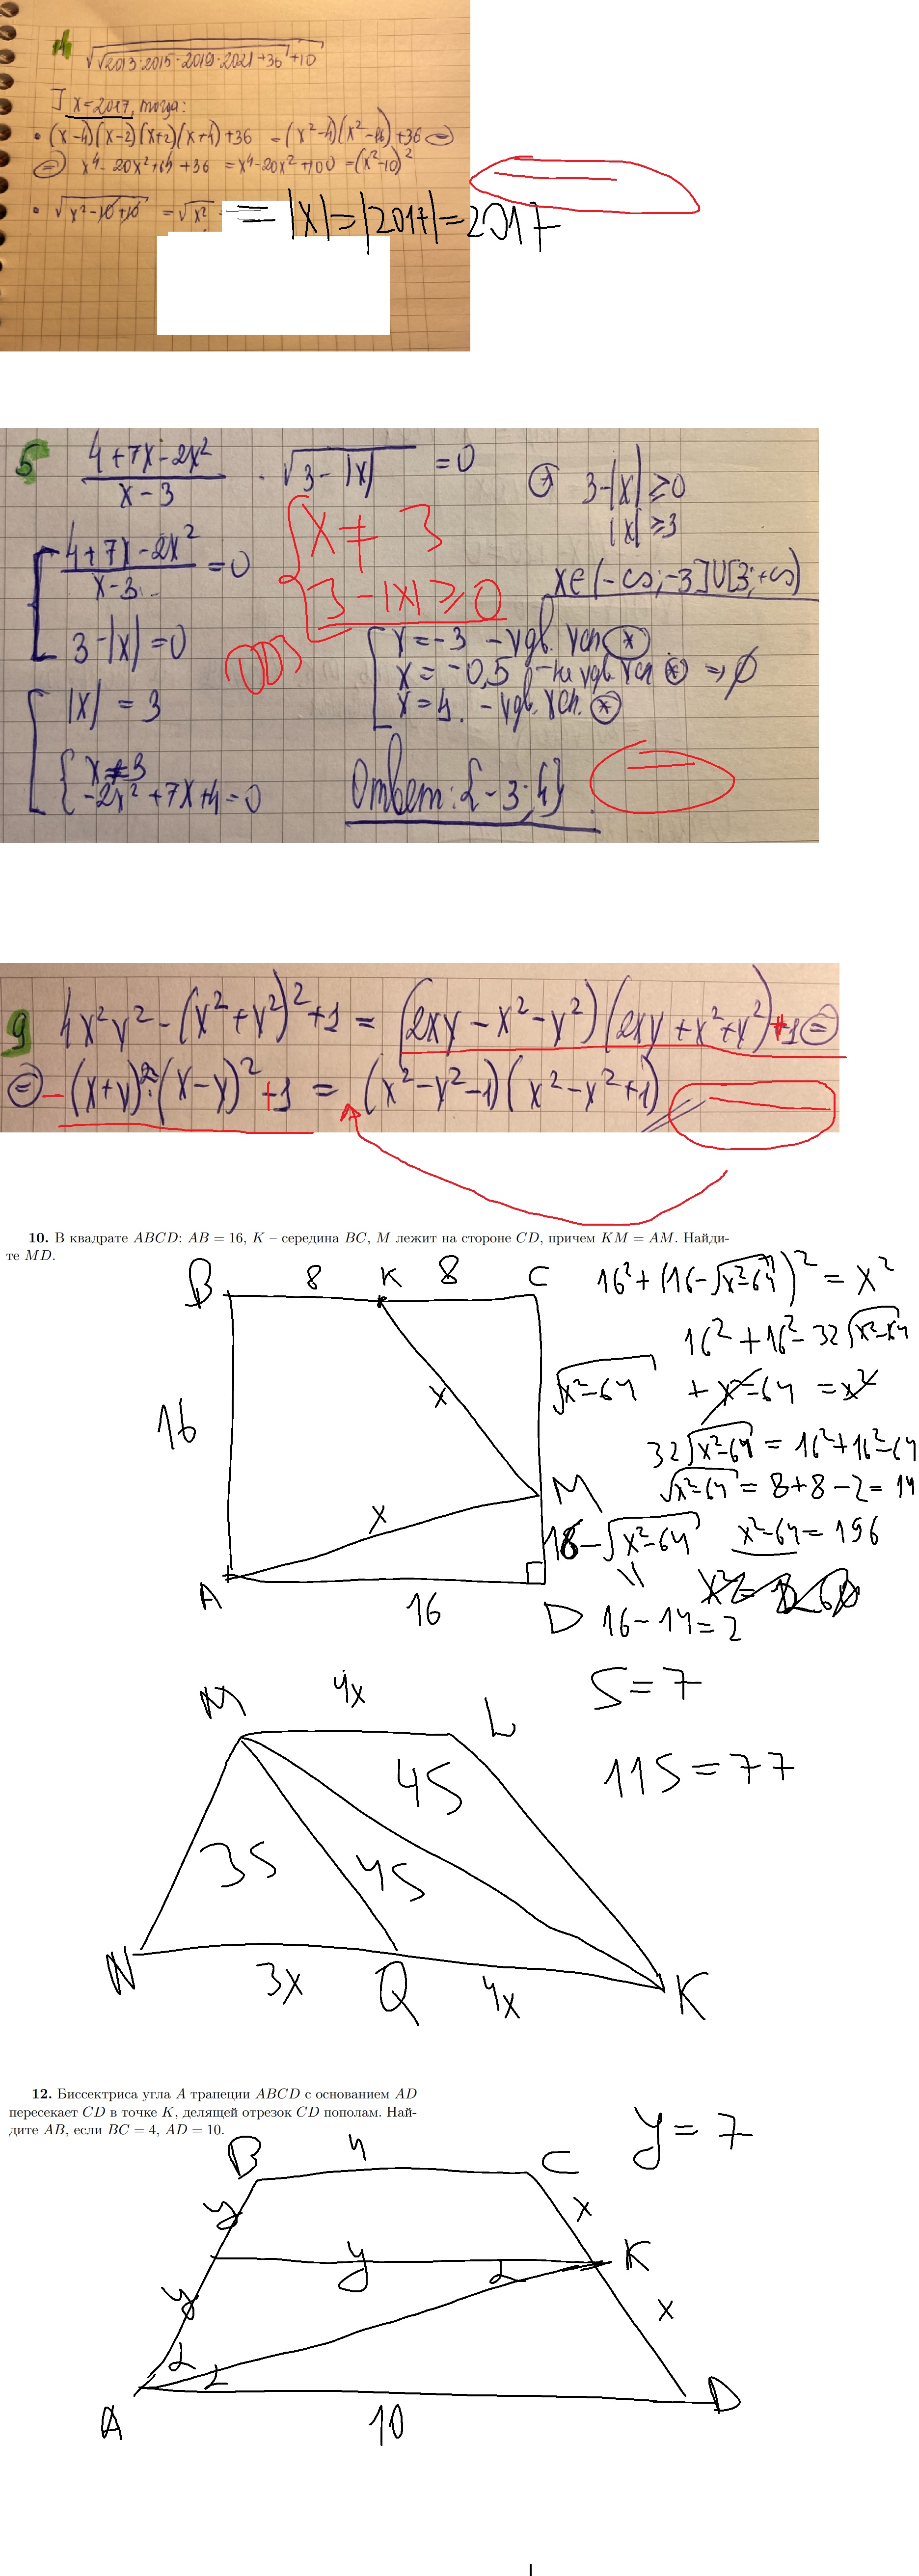 √(√(2013·2015·2019·2021+36)+10)
] x=2017, тогда:
• (x-4)(x-2)(x+2)(x+4)+36 = (x²-4)(x²-16)+36 ⊜
⊜ x⁴-20x²+64+36 = x⁴-20x²+100 = (x²-10)²
• √(x²-10+10) = √x² = |x| = |2017| = 2017
5 (4+7x-2x²)/(x-3) · √(3-|x|) = 0
3-|x| ≥ 0
|x| ≥ 3
x∈(-∞;-3]∪[3;+∞)
(4+7x-2x²)/(x-3) = 0
3-|x| = 0
x ≠ 3
3-|x| ≥ 0
ОДЗ
|x| = 3
x ≠ 3
-2x²+7x+4=0
x=-3 - удв. усл. (*)
x=-0,5 - не удв. усл. (*) ⇒ ∅
x=4. - удв. усл. (*)
Ответ: {-3;4}
9 4x²y²-(x²+y²)²+1 = (2xy-x²-y²)(2xy+x²+y²)+1 ⊜
⊜ -(x+y)²·(x-y)²+1 = (x²-y²-1)(x²-y²+1)
10. В квадрате ABCD: AB = 16, K – середина BC, M лежит на стороне CD, причем KM = AM. Найди-
те MD.
B 8 K 8 C
16
x
√(x²-64)
M
x
16-√(x²-64)
=
A 16 D 16-14=2
16²+(16-√(x²-64))² = x²
16²+16²-32√(x²-64)
+x²-64 = x²
32√(x²-64) = 16²+16²-64
√(x²-64) = 8+8-2 = 14
x²-64 = 196
M 4x L
S=7
4S
11S=77
3S 4S
N 3x Q 4x K
12. Биссектриса угла A трапеции ABCD с основанием AD
пересекает CD в точке K, делящей отрезок CD пополам. Най-
дите AB, если BC = 4, AD = 10.
y=7
B 4 C
y x
y α K
y x
α
α
A 10 D